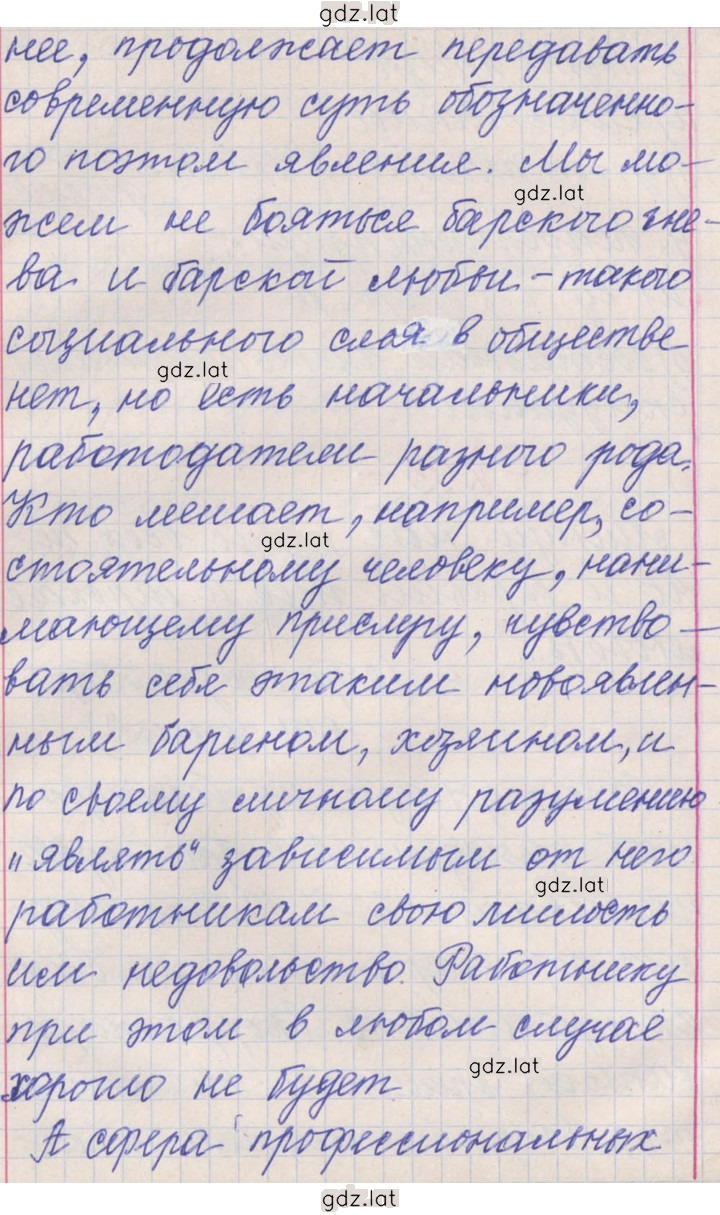 gdz.lat
нее, продолжает передавать
современную суть обозначенно-
го поэтом явления. Мы мо-
gdz.lat
жем не бояться барского гне-
ва и барской любви - такого
социального слоя в обществе
gdz.lat
нет, но есть начальники,
работодатели разного рода.
Кто мешает, например, со-
gdz.lat
стоятельному человеку, нани-
мающему прислугу, чувство-
вать себя этаким новоявлен-
ным барином, хозяином, и
по своему личному разумению
"являть" зависимым от него
gdz.lat
работникам свою милость
или недовольство. Работнику
при этом в любом случае
gdz.lat
хорошо не будет
А сфера профессиональных
gdz.lat